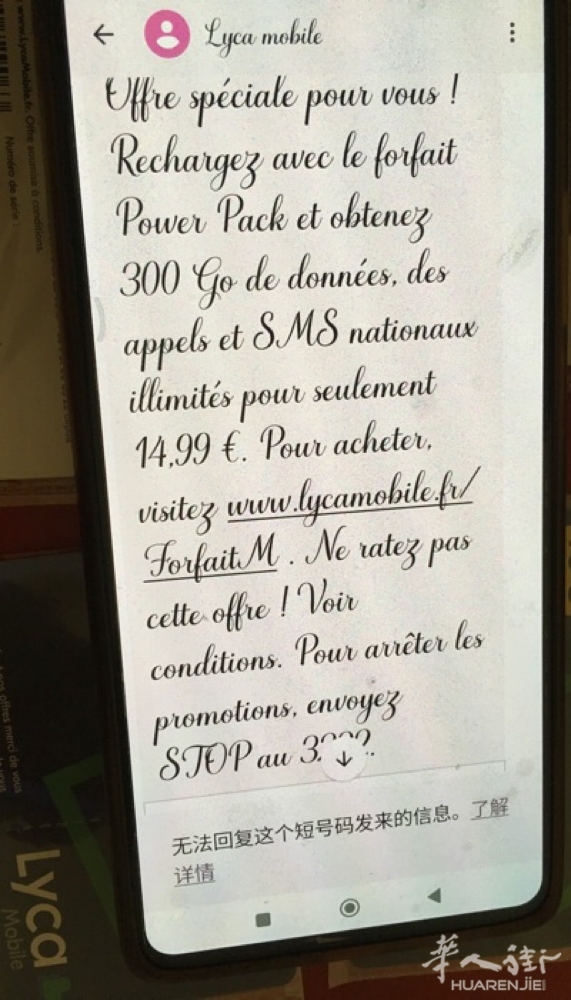 Lyca mobile
Offre spéciale pour vous !
Rechargez avec le forfait
Power Pack et obtenez
300 Go de données, des
appels et SMS nationaux
illimités pour seulement
14,99 €. Pour acheter,
visitez www.lycamobile.fr/
ForfaitM . Ne ratez pas
cette offre ! Voir
conditions. Pour arrêter les
promotions, envoyez
STOP au
无法回复这个短号码发来的信息。了解
详情
www.LycaMobile.fr. Offre soumise à conditions
Numéro de série :
Lyca
Mobile
華人街
HUARENJIE